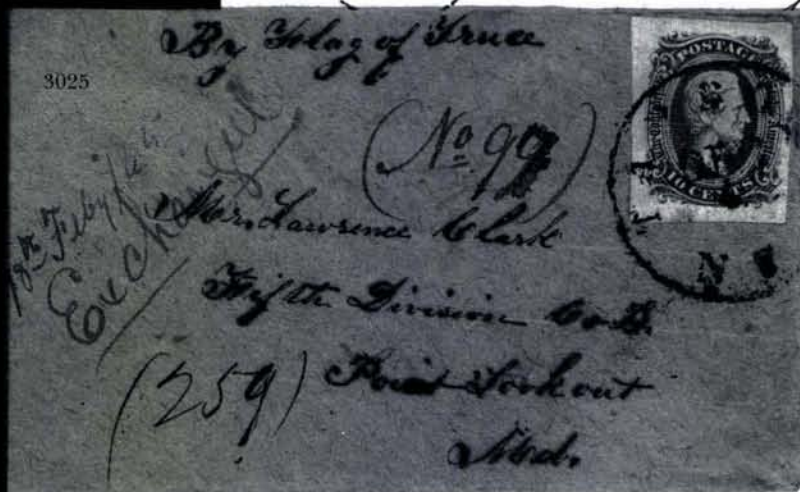 By Flag of Truce
3025
POSTAGE
10 CENTS
(No. 99)
18th Feby/65
Exchanged
Mr. Lawrence Clark
Fifth Division Co D.
(259) Point Lookout
Md.
N